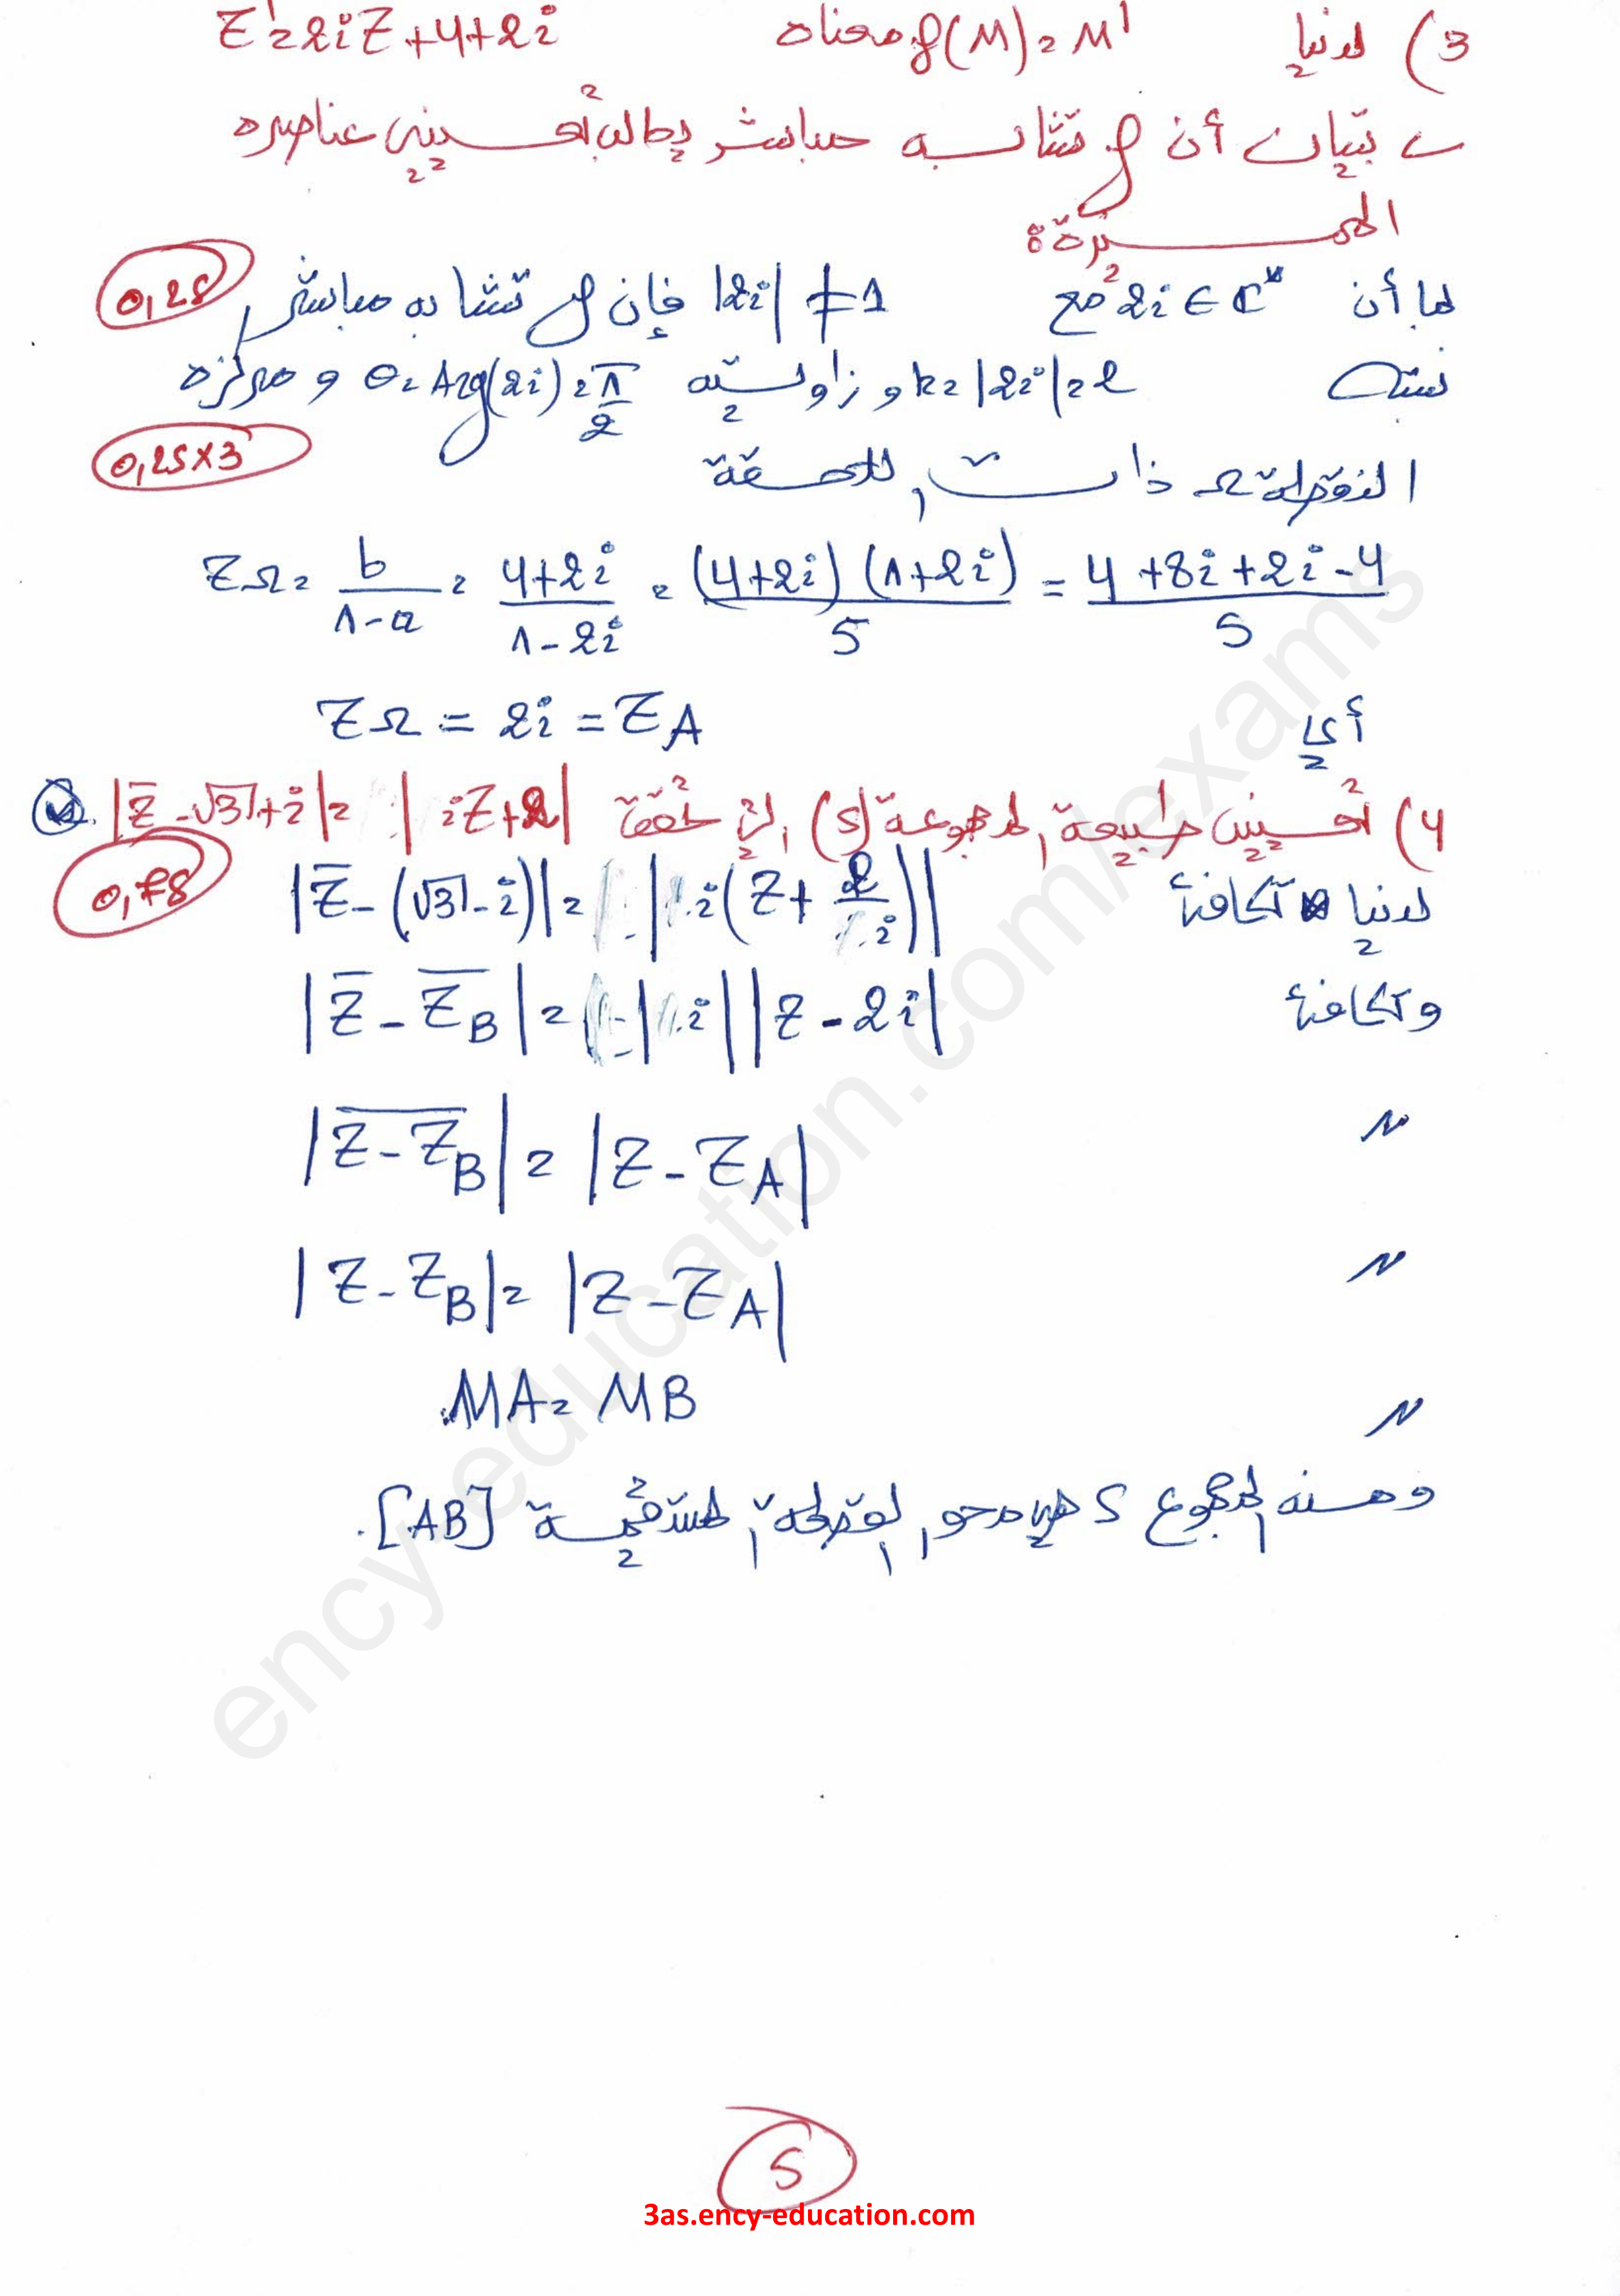 3) لدينا f(M) = M' معناه Z' = 2iZ + 4 + 2i
ـ تبيان أن f تشابه مباشر يطلب تعيين عناصره
المميزة:
بما أن 2i ∈ ℂ* مع |2i| ≠ 1 فإن f تشابه مباشر 0,25
نسبته k = |2i| = 2 و زاويته θ = Arg(2i) = π/2 و مركزه
النقطة Ω ذات اللاحقة 0,25×3
ZΩ = b/(1-a) = (4+2i)/(1-2i) = (4+2i)(1+2i)/5 = (4+8i+2i-4)/5
أي ZΩ = 2i = Z_A
4) تعيين طبيعة المجموعة (S) التي تحقق |Z̄ - √3 + i| = |iZ + 2|
لدينا تكافئ |Z̄ - (√3 - i)| = |i(Z + 2/i)| 0,75
وتكافئ |Z̄ - Z̄_B| = |i||Z - 2i|
〃 |\overline{Z - Z_B}| = |Z - Z_A|
〃 |Z - Z_B| = |Z - Z_A|
〃 MA = MB
ومنه المجموع S هي محور القطعة المستقيمة [AB].
5
3as.ency-education.com
ency-education.com/exams